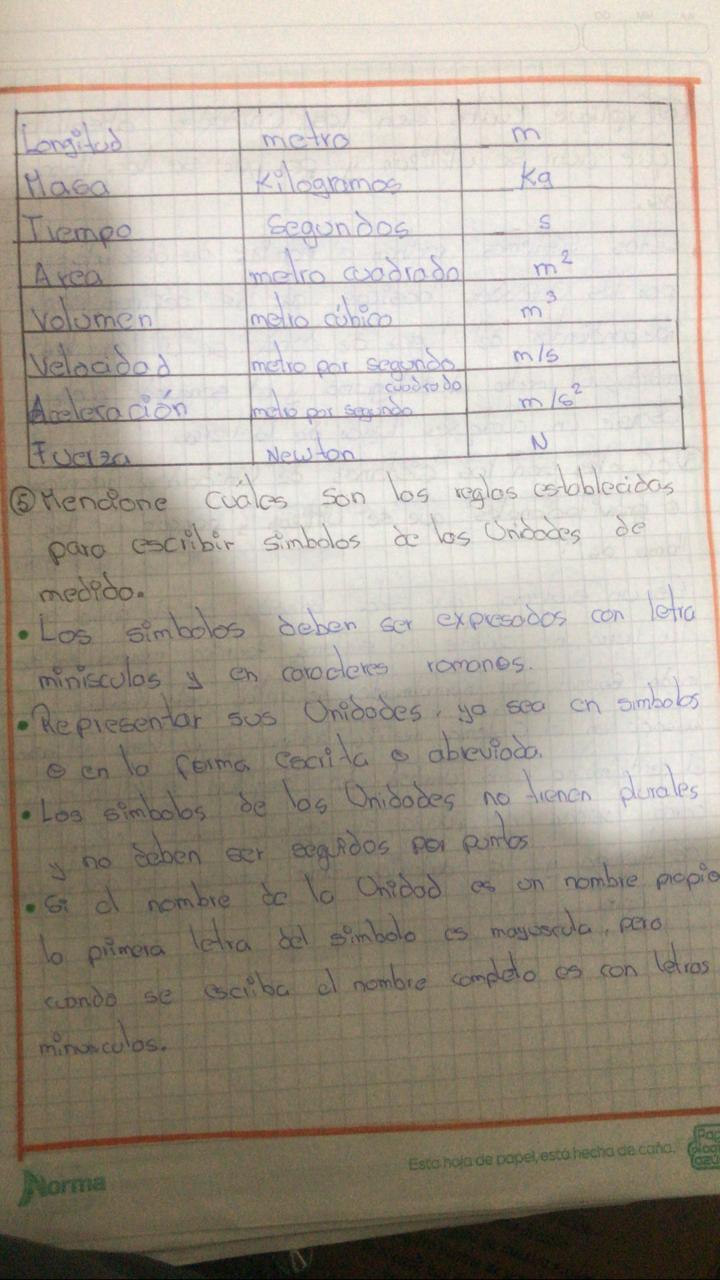 Longitud metro m
Masa Kilogramos Kg
Tiempo Segundos s
Area metro cuadrado m²
Volumen metro cúbico m³
Velocidad metro por segundo m/s
cuadrado
Aceleración metro por segundo m/s²
Fuerza Newton N
⑤ Mencione cuales son las reglas establecidas
para escribir simbolos de las Unidades de
medida.
• Los simbolos deben ser expresados con letra
minisculas y en caracteres romanos.
• Representar sus Unidades, ya sea en simbolos
o en la forma escrita o abreviada.
• Los simbolos de las Unidades no tienen plurales
y no deben ser seguidos por puntos
• Si el nombre de la Unidad es un nombre propio
la primera letra del simbolo es mayuscula, pero
cuando se escriba el nombre completo es con letras
minusculas.
Esta hoja de papel, está hecha de caña.
Norma